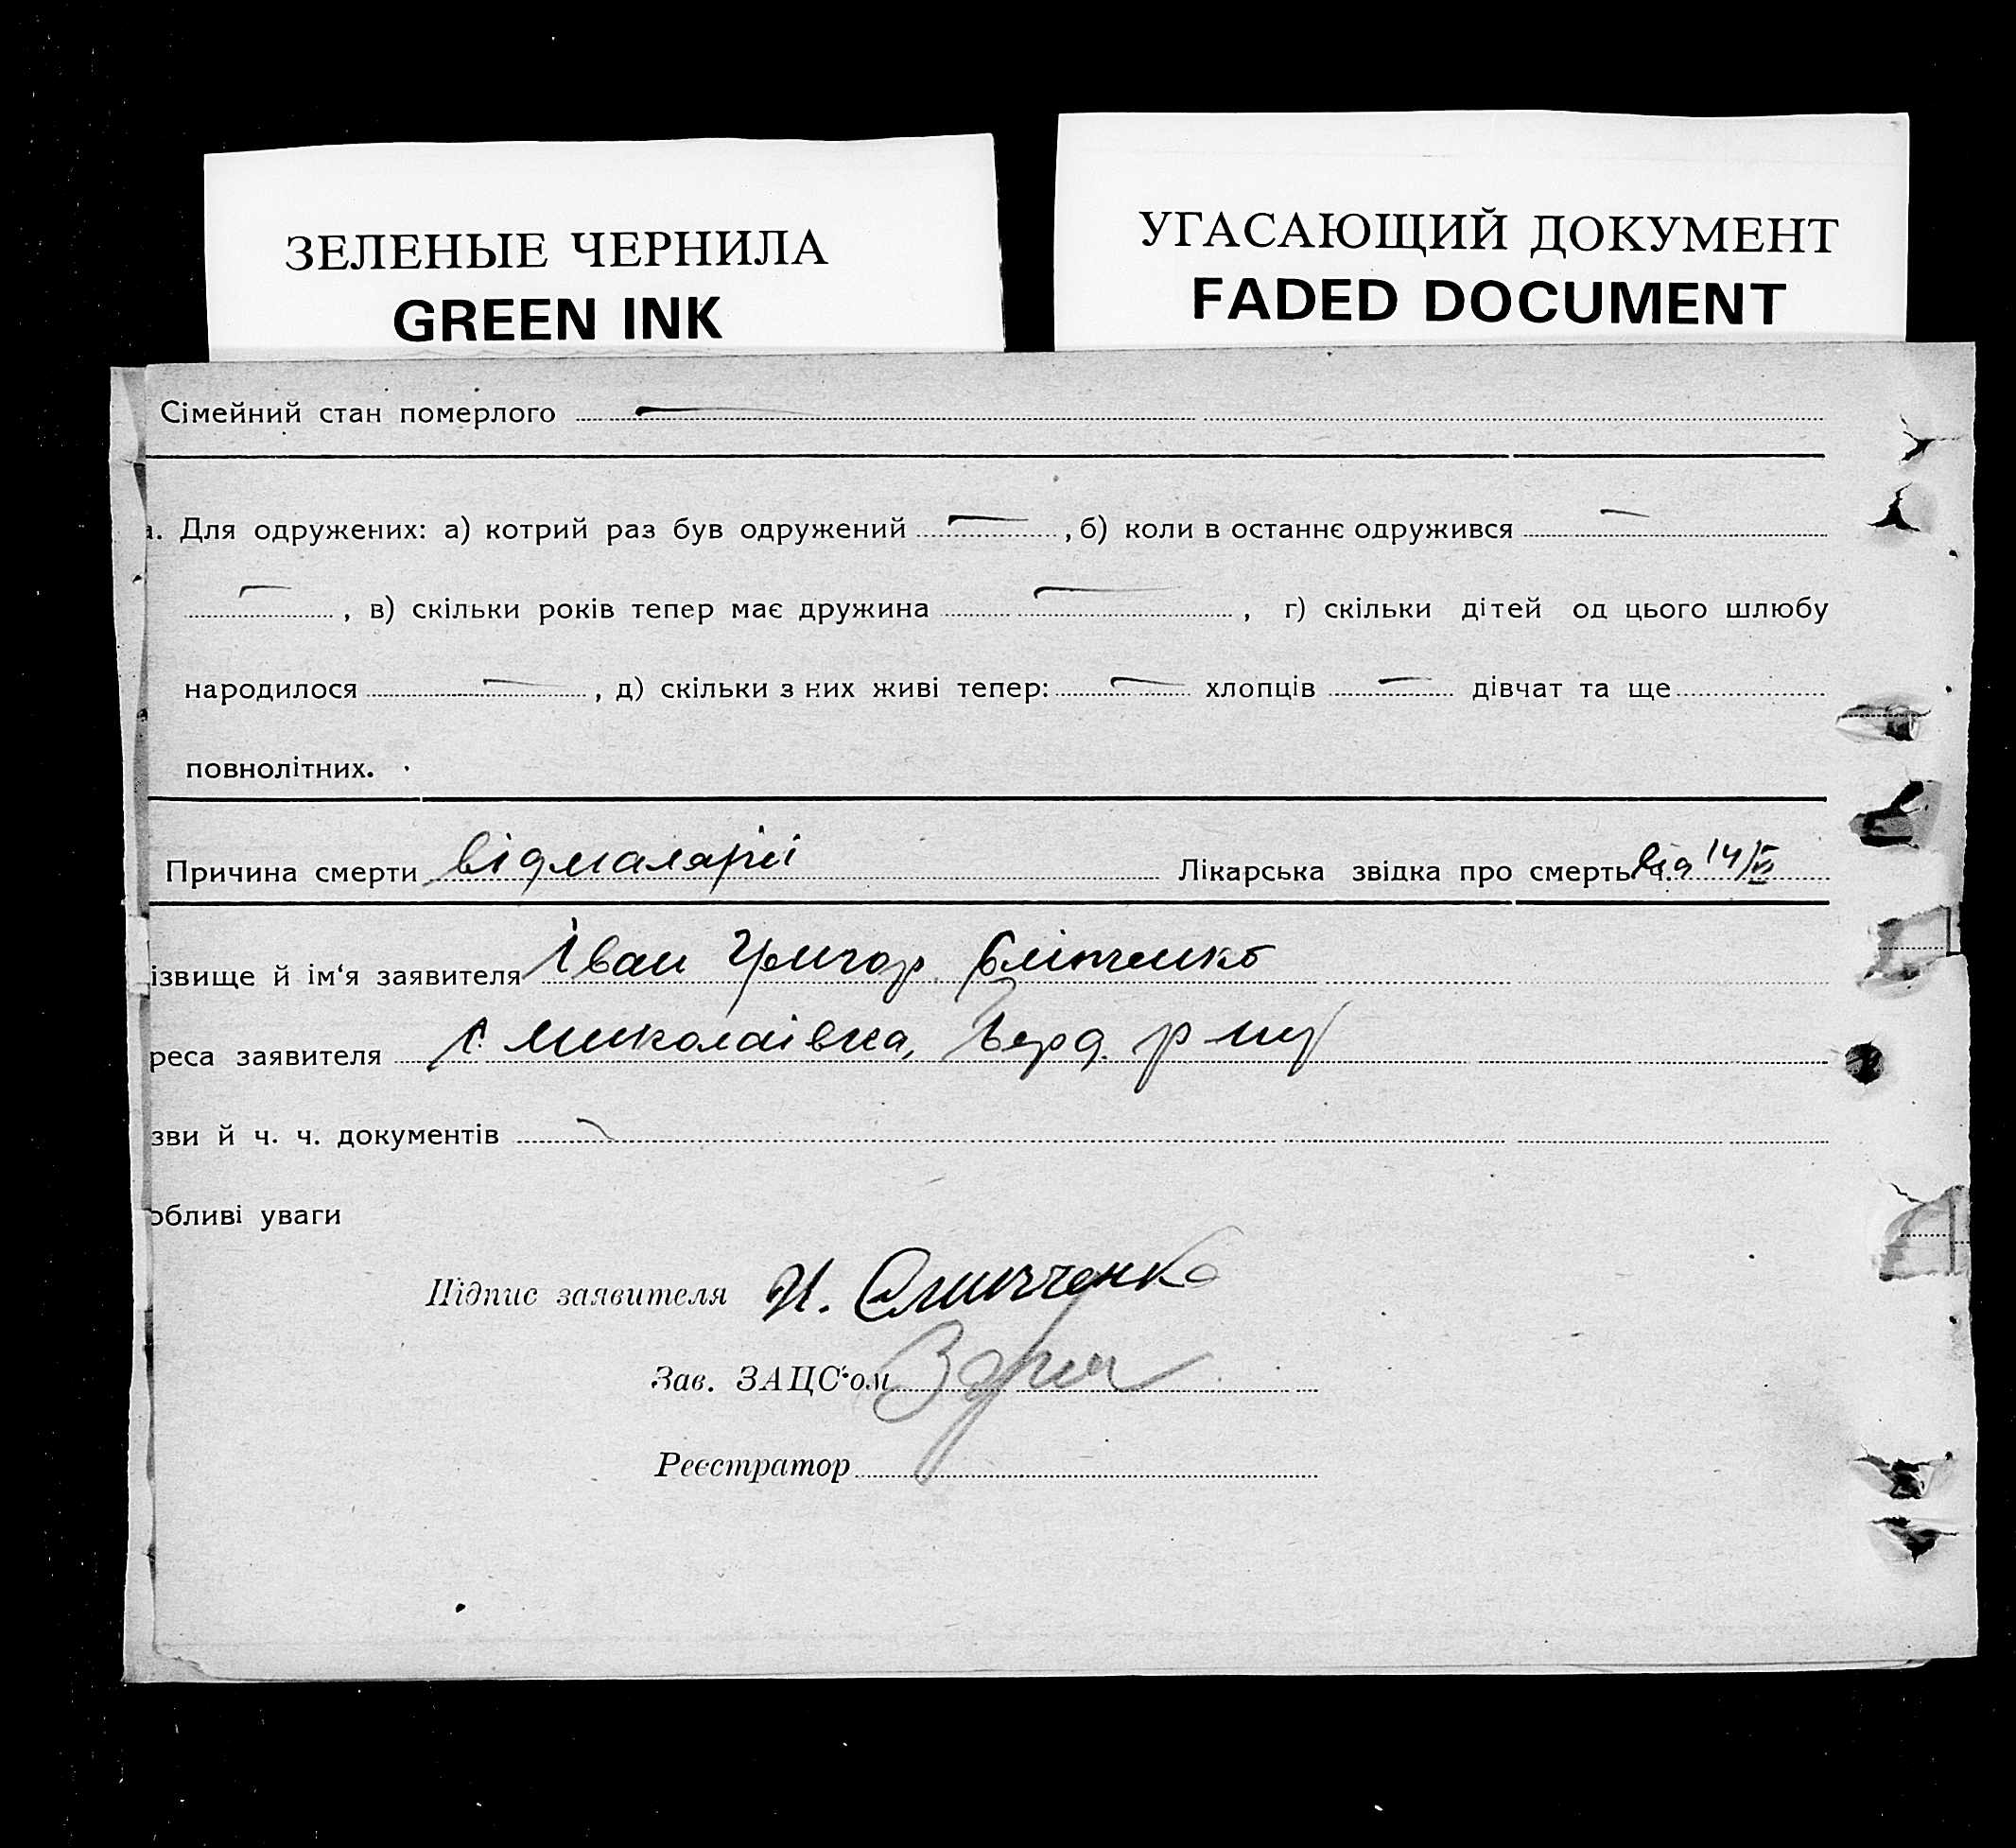 ЗЕЛЕНЫЕ ЧЕРНИЛА
GREEN INK
УГАСАЮЩИЙ ДОКУМЕНТ
FADED DOCUMENT
Сімейний стан померлого —
а. Для одружених: а) котрий раз був одружений —, б) коли в останнє одружився —
—, в) скільки років тепер має дружина —, г) скільки дітей од цього шлюбу
народилося —, д) скільки з них живі тепер: — хлопців — дівчат та ще
повнолітних.
Причина смерти від малярії Лікарська звідка про смерть від 14/VI
ізвище й ім‘я заявителя Іван Григор.
реса заявителя с Миколаівка, Берд. р ну
зви й ч. ч. документів
обливі уваги
Підпис заявителя И.
Зав. ЗАЦС‘ом
Реєстратор